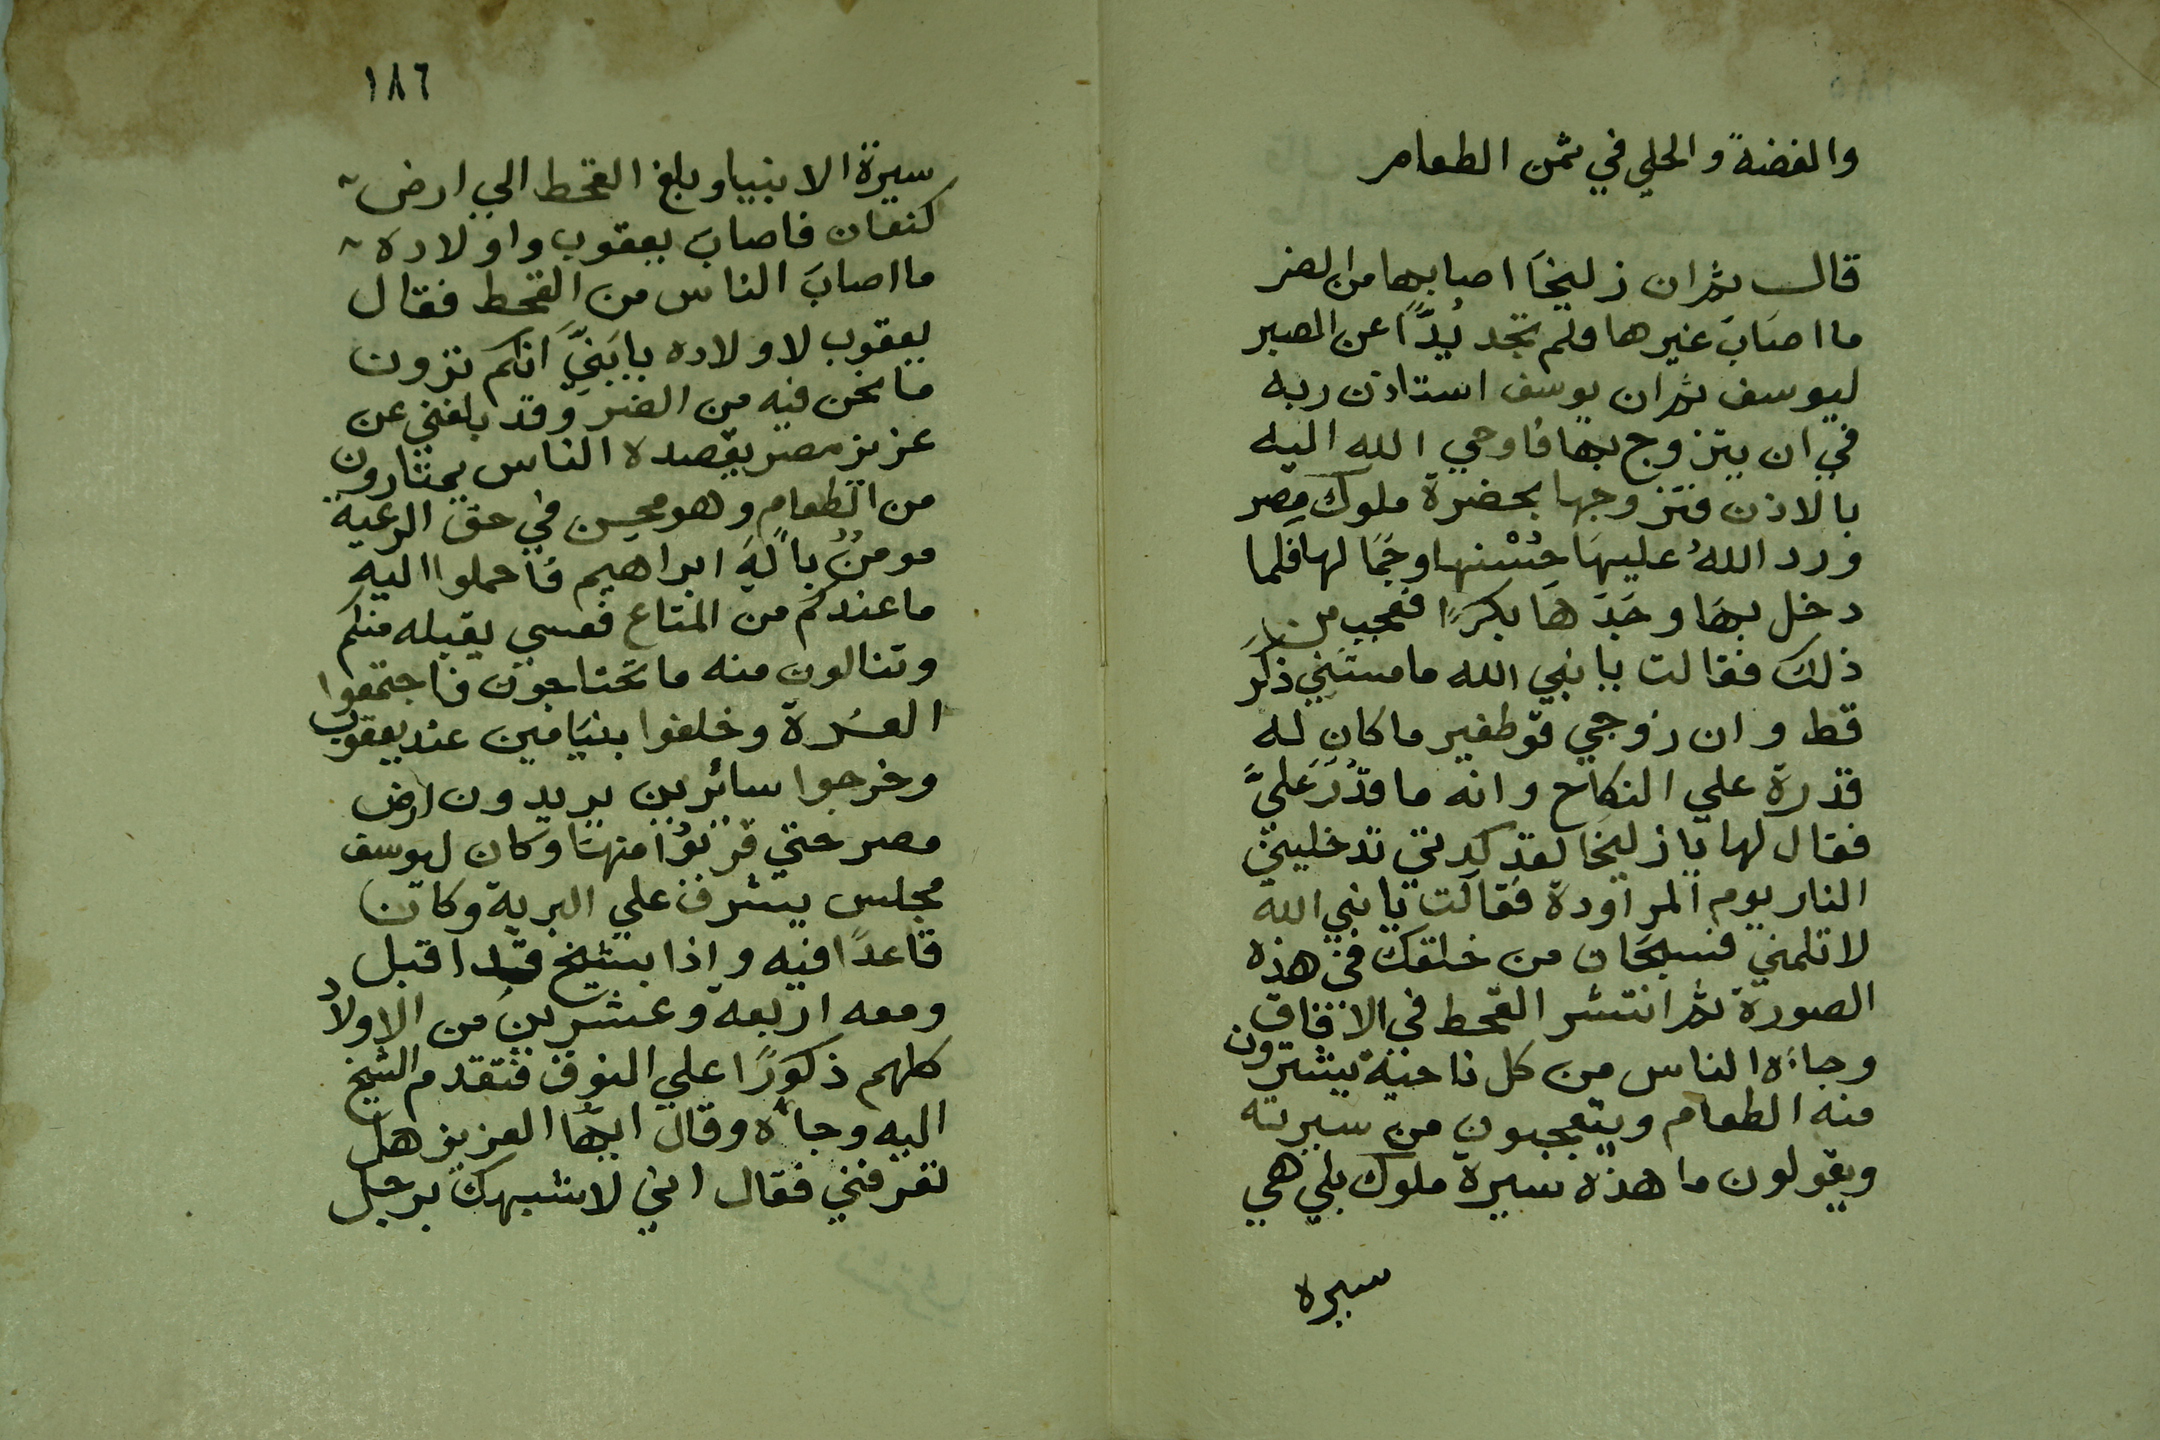 والفضة والحلي في ثمن الطعام
قال ثم ان زليخَا اصابها من الضر
ما اصَابَ غيرها ولم تجد بُدًّا عن الصبر
ليوسف ثم ان يوسف استاذن ربه
في ان يتزوج بها فاوحي الله اليه
بالاذن فتزوجها بحضرة ملوك مِصر
ورد اللهُ عليهَا حُسْنها وجَمَا لها فلما
دخل بهَا وجَدَهَا بكرًا فعجب من
ذلك فقالت يا نبي الله ما مسَّنِي ذكَر
قط وان زوجي قوطفير ما كان له
قدرة علي النكاح وانه ما قدَر عَليَّ
فقال لها يا زليخَا لقد كدتي تدخليني
النار يوم المراودة فقالت يا نبي الله
لا تلمني فسبحَان من خلقك في هذه
الصورة ثم انتشر القحط في الافاق
وجاءه الناس من كل ناحية يشترون
منه الطعام ويتعجبون من سيرته
ويقولون ما هذه سيرة ملوك بلي هي
سيره
١٨٦
سيرة الانبيا وبلغ القحط الي ارض
كنعان فاصابَ يعقوب واولاده
ما اصابَ الناس من القحط فقال
يعقوب لاولاده يا بَنيَّ انكم ترون
ما نحن فيه من الضر وقد بلغني عن
عزيز مصر يقصده الناس يمتارون
من الطعام وهو محسن في حق الرعية
مومنٌ بالَهِ ابراهيم فاحملوا اليه
ما عندكم من المتاع فعسي يقبله منكم
وتنالون منه ما تحتاجون فاجتمعوا
العشرة وخلفوا بنيَامين عند يعقوب
وخرجوا سائرين يريدون ارض
مصر حتي قربُوا منهَا وكان ليوسف
مجلس يشرف علي البرية وكان
قاعدًا فيه واذا بشيخ قد اقبل
ومعه اربعة وعشرين من الاولاد
كلهم ذكورًا علي النوق فتقدم الشيخ
اليه وجاءه وقال ايهَا العزيز هل
تعرفني فقال اني لاشبهك برجل